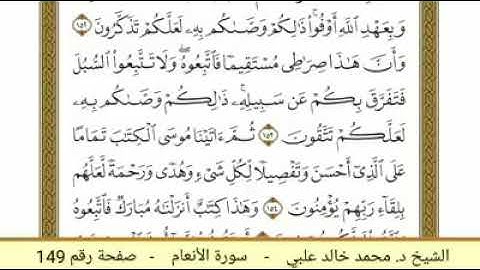 وَبِعَهْدِ ٱللَّهِ أَوْفُوا۟ ۚ ذَٰلِكُمْ وَصَّىٰكُم بِهِۦ لَعَلَّكُمْ تَذَكَّرُونَ ١٥٢
وَأَنَّ هَٰذَا صِرَٰطِى مُسْتَقِيمًا فَٱتَّبِعُوهُ ۖ وَلَا تَتَّبِعُوا۟ ٱلسُّبُلَ
فَتَفَرَّقَ بِكُمْ عَن سَبِيلِهِۦ ۚ ذَٰلِكُمْ وَصَّىٰكُم بِهِۦ
لَعَلَّكُمْ تَتَّقُونَ ١٥٣ ثُمَّ ءَاتَيْنَا مُوسَى ٱلْكِتَٰبَ تَمَامًا
عَلَى ٱلَّذِىٓ أَحْسَنَ وَتَفْصِيلًا لِّكُلِّ شَىْءٍ وَهُدًى وَرَحْمَةً لَّعَلَّهُم
بِلِقَآءِ رَبِّهِمْ يُؤْمِنُونَ ١٥٤ وَهَٰذَا كِتَٰبٌ أَنزَلْنَٰهُ مُبَارَكٌ فَٱتَّبِعُوهُ
الشيخ د. محمد خالد علبي - سورة الأنعام - صفحة رقم 149